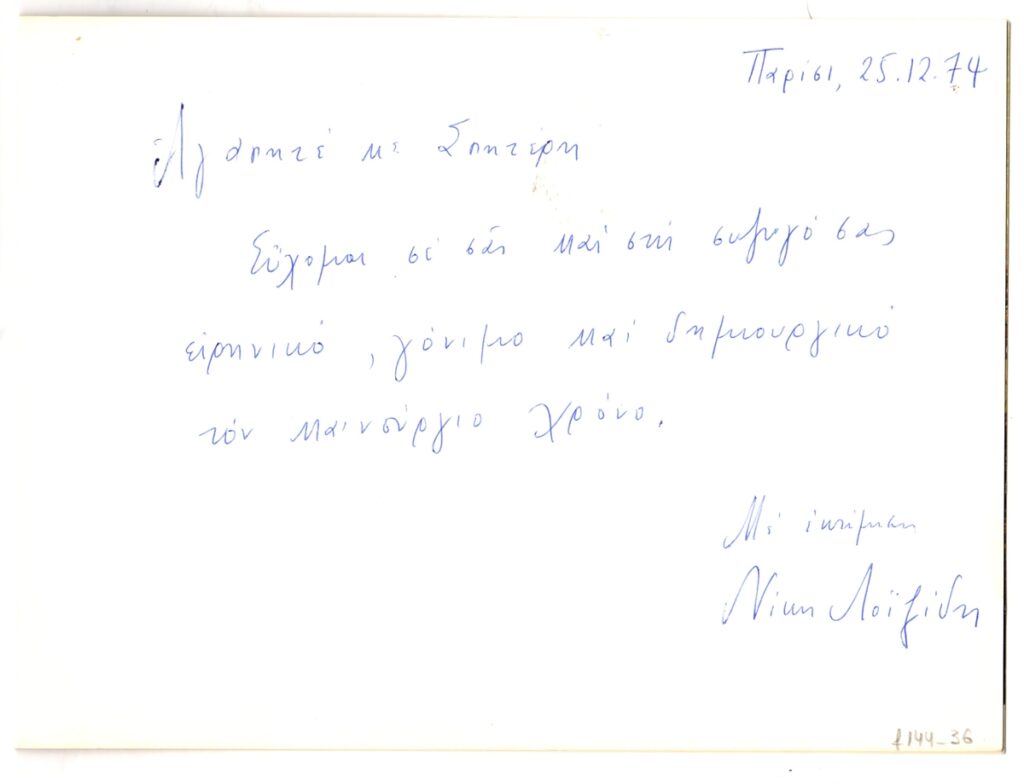 Παρίσι, 25.12.74
Ἀγαπητέ κε Σπητέρη
Εὔχομαι σέ σᾶς καί στή συζυγό σας
εἰρηνικό, γόνιμο καί δημιουργικό
τόν καινούργιο χρόνο.
Μέ ἐκτίμηση
Νίκη Λοϊζίδη
f144-36